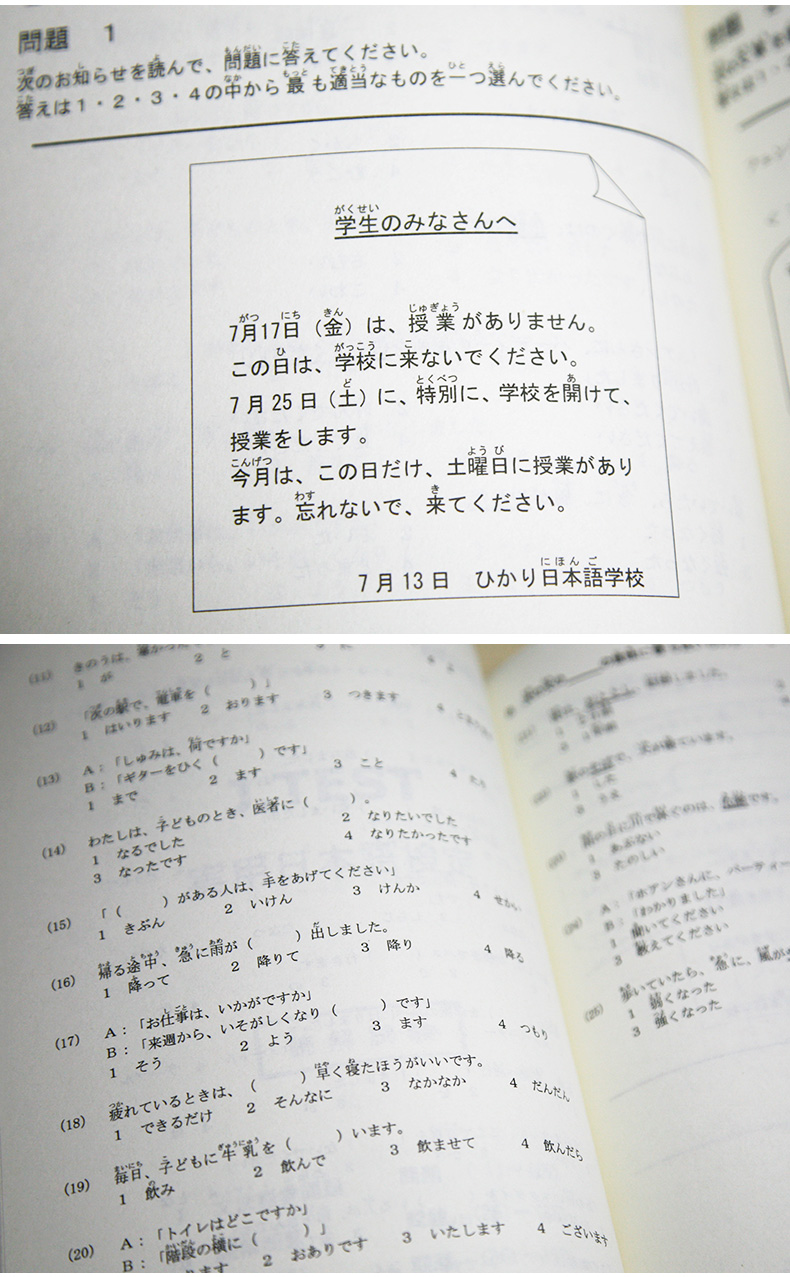 問題 1
次のお知らせを読んで、問題に答えてください。
答えは1・2・3・4の中から最も適当なものを一つ選んでください。
学生のみなさんへ
7月17日（金）は、授業がありません。
この日は、学校に来ないでください。
7月25日（土）に、特別に、学校を開けて、
授業をします。
今月は、この日だけ、土曜日に授業があり
ます。忘れないで、来てください。
7月13日 ひかり日本語学校
(11) きのうは、
1 が 2 と
(12) 「次の駅で、電車を（ ）」
1 はいります 2 おります 3 つきます 4
(13) A：「しゅみは、何ですか」
B：「ギターをひく（ ）です」
1 まで 2 ます 3 こと 4
(14) わたしは、子どものとき、医者に（ ）。
1 なるでした 2 なりたいでした
3 なったです 4 なりたかったです
(15) 「（ ）がある人は、手をあげてください」
1 きぶん 2 いけん 3 けんか 4 せかい
(16) 帰る途中、急に雨が（ ）出しました。
1 降って 2 降りて 3 降り 4 降る
(17) A：「お仕事は、いかがですか」
B：「来週から、いそがしくなり（ ）です」
1 そう 2 よう 3 ます 4 つもり
(18) 疲れているときは、（ ）早く寝たほうがいいです。
1 できるだけ 2 そんなに 3 なかなか 4 だんだん
(19) 毎日、子どもに牛乳を（ ）います。
1 飲み 2 飲んで 3 飲ませて 4 飲んだら
(20) A：「トイレはどこですか」
B：「階段の横に（ ）」
2 おありです 3 いたします 4 ございます
1 あぶない
3 たのしい
A：「ホアンさんに、パーティー
B：「わかりました」
1 聞いてください
3 教えてください
歩いていたら、急に、風が
1 弱くなった
3 強くなった